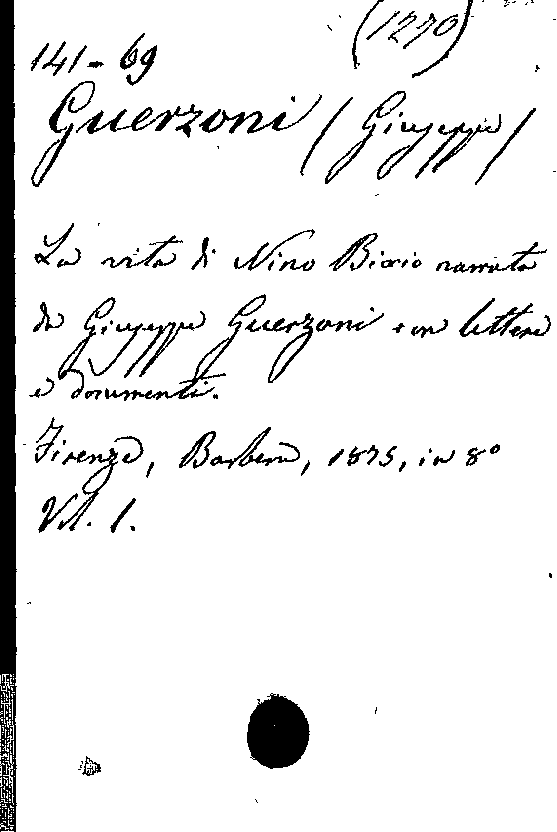 (1270)
141-69
Guerzoni (Giuseppe)
La vita di Nino Bixio narrata
da Giuseppe Guerzoni con lettere
e documenti.
Firenze, Barbera, 1875, in 8°
Vol. 1.